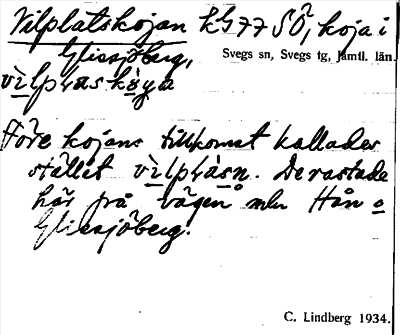 Vilplatskojan kG77SÖ, koja i
Glissjöberg,
Svegs sn, Svegs tg, Jämtl. län.
Före kojans tillkomst kallades
stället vilplasn. De rastade
här på vägen mln Hån o
Glissjöberg.
C. Lindberg 1934.